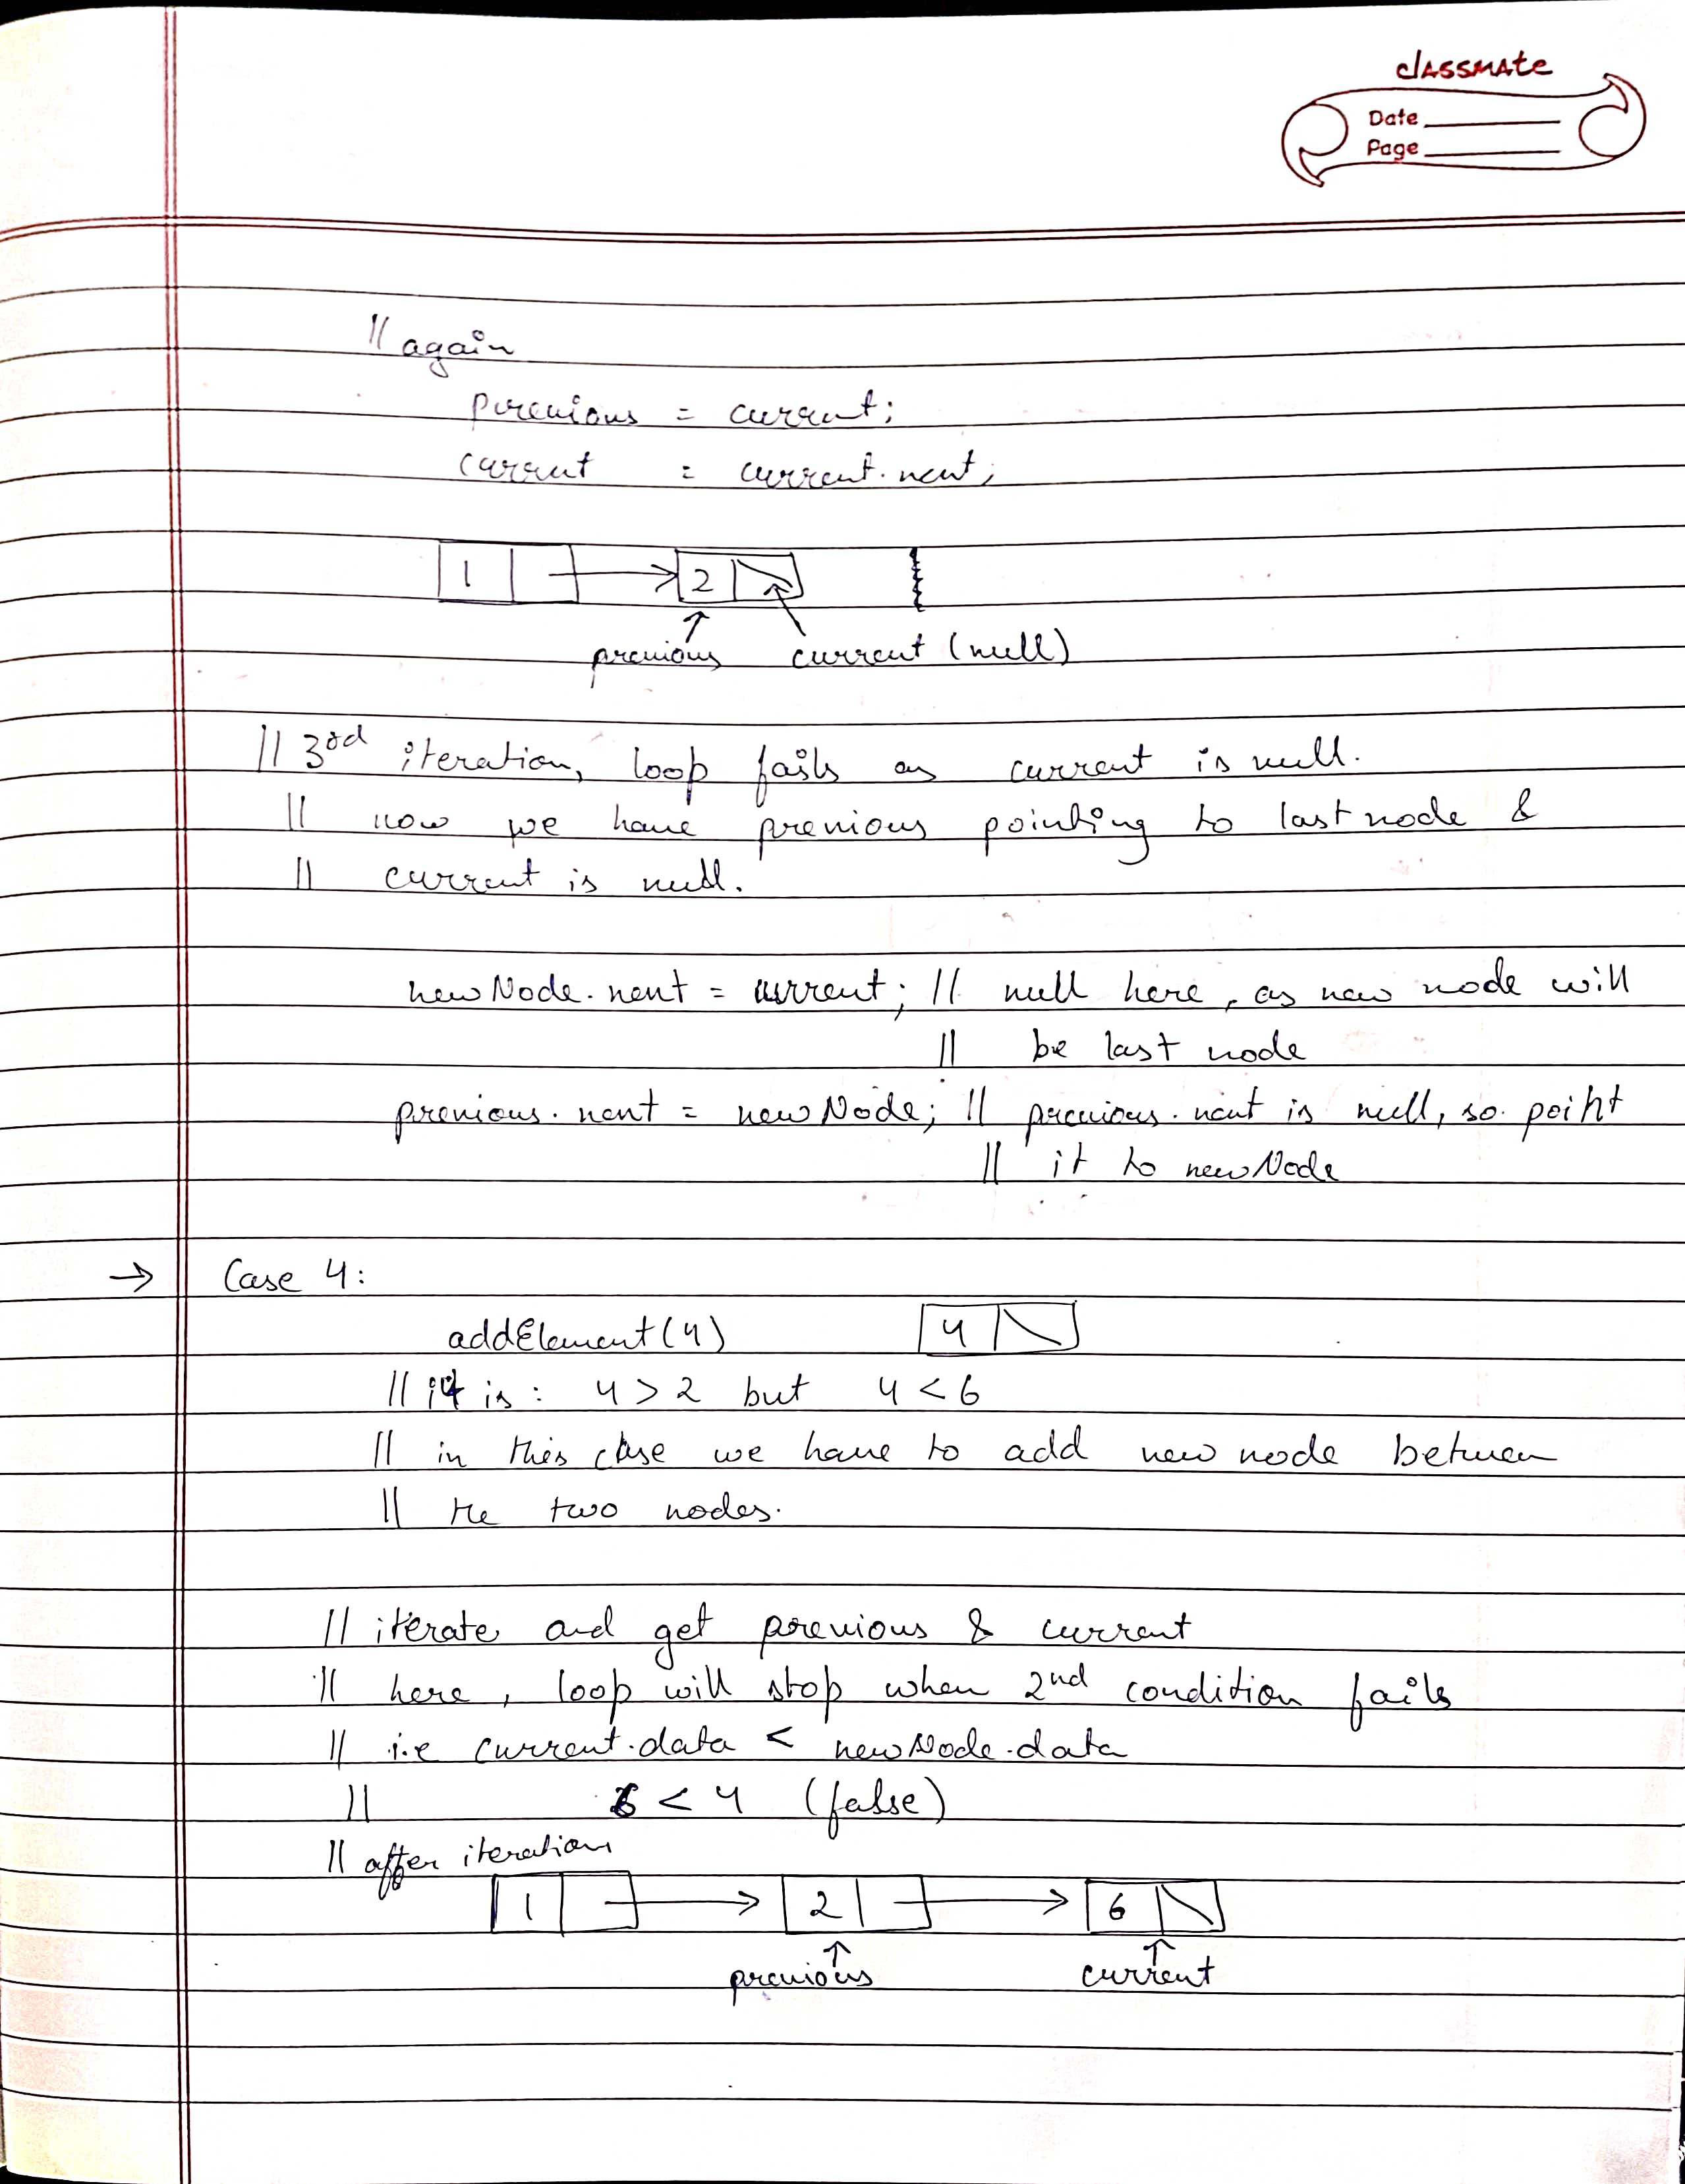 classmate
Date
Page
// again
previous = current;
current = current.next;
1 2
previous current (null)
// 3rd iteration, loop fails as current is null.
// now we have previous pointing to last node &
// current is null.
newNode.next = current; // null here, as new node will
// be last node
previous.next = newNode; // previous.next is null, so point
// it to newNode
→ Case 4:
addElement(4) 4
// it is: 4 > 2 but 4 < 6
// in this case we have to add new node between
// the two nodes.
// iterate and get previous & current
// here, loop will stop when 2nd condition fails
// i.e current.data < newNode.data
// 6 < 4 (false)
// after iteration
1 2 6
previous current